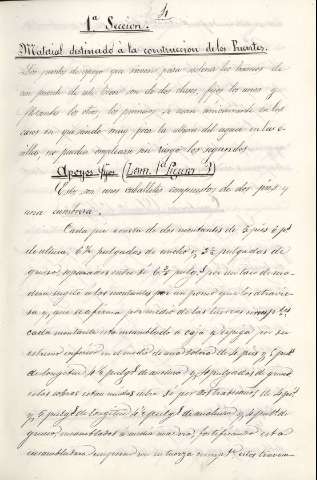 4
1ª Seccion.
Material destinado á la construccion de los Puentes.
Los puntos de apoyo que sirven para sostener los tramos de
un puente de esta clase son de dos clases, fijos los unos y
flotantes los otros, los primeros se usan unicamente en los
casos en que siendo muy poca la altura del agua en las o-
rillas no puedan emplearse sin riesgo los segundos.
Apoyos fijos (Lam. 1ª Figura 1ª)
Estos son unos caballetes compuestos de dos pies y
una cumbrera.
Cada pie consta de dos montantes de 5 pies 6 pul.
de altura, 6 ½ pulgadas de ancho y 3 ½ pulgadas de
grueso, separados entre si 6 ½ pulg.s por un taco de ma-
dera sugeto a los montantes por un perno que los atravie-
sa y que se afirma por medio de las tuercas
cada montante esta ensamblado a caja y espiga por su
estremo inferior en el medio de una solera de 4 pies y 5 pulg.s
de longitud 4 ½ pulg.s de anchura y 4 pulgadas de grueso
estas soleras estan unidas entre si por dos traviesas de 4 pies
y 5 pulg.s de longitud 4 ½ pulg.s de anchura y 4 pulg.s de
grueso, ensambladas a media madera, fortificando esta
ensambladura en estos travesa-